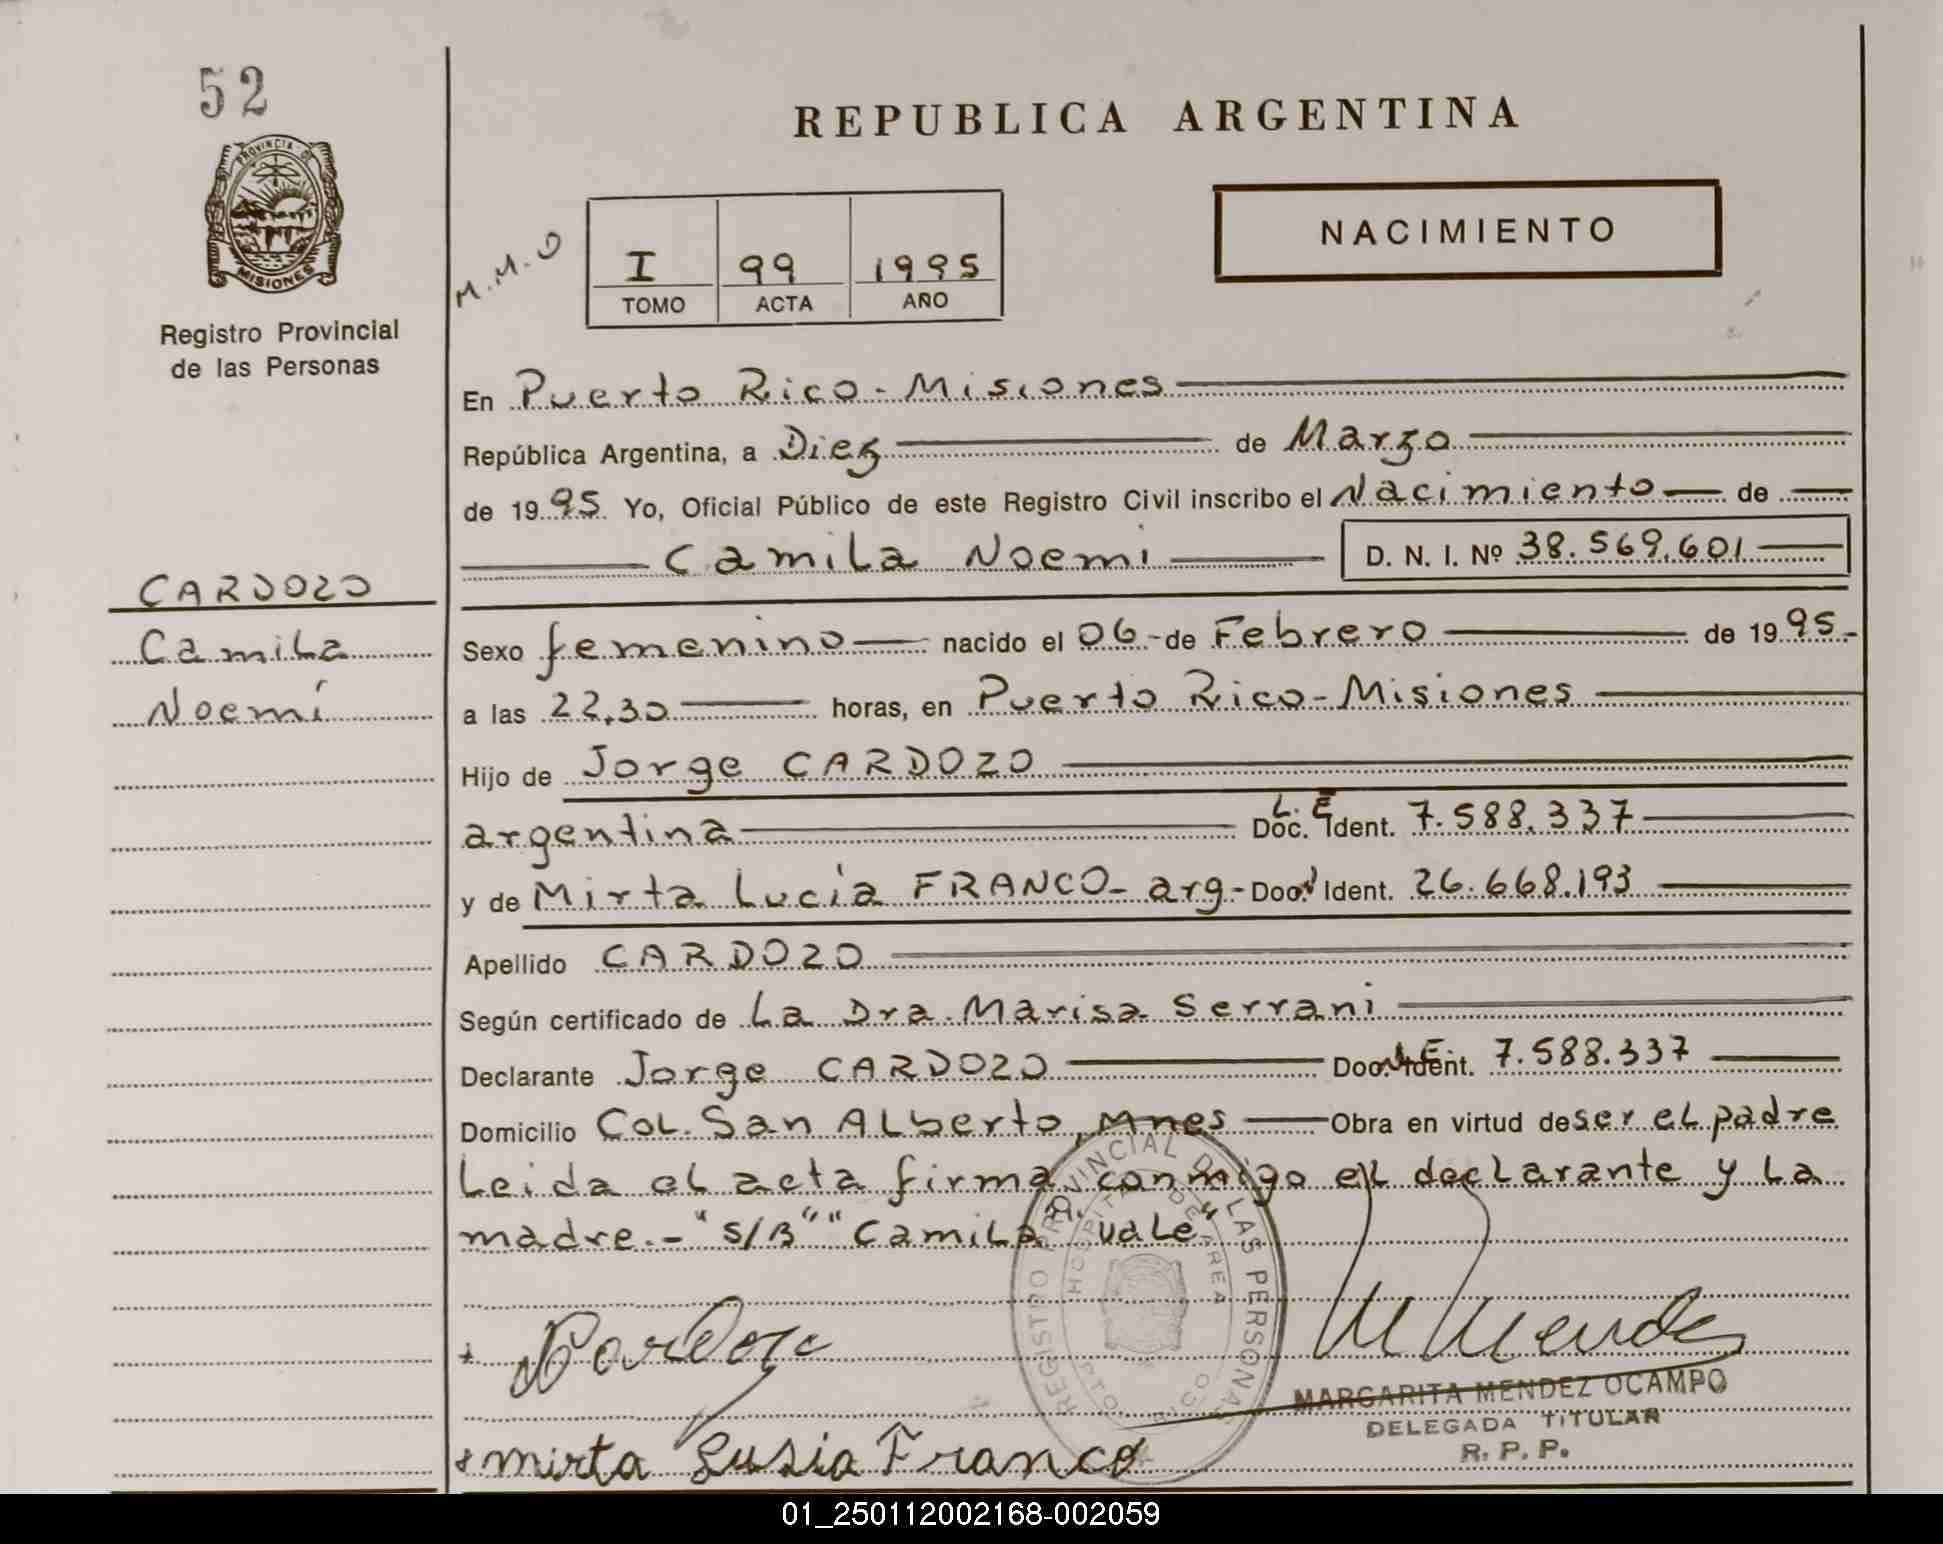 52
REPUBLICA ARGENTINA
PROVINCIA DE
MISIONES
Registro Provincial
de las Personas
M.M.O
I 99 1995
TOMO ACTA AÑO
NACIMIENTO
En Puerto Rico - Misiones
República Argentina, a Diez de Marzo
de 1995 Yo, Oficial Público de este Registro Civil inscribo el Nacimiento de
Camila Noemi D. N. I. Nº 38.569.601
CARDOZO
Camila
Noemí
Sexo femenino nacido el 06 - de Febrero de 1995.-
a las 22,30 horas, en Puerto Rico - Misiones
Hijo de Jorge CARDOZO
argentina Doc. Ident. L.E 7.588.337
y de Mirta Lucía FRANCO - arg - Doc. Ident. 26.668.193
Apellido CARDOZO
Según certificado de La Dra. Marisa Serrani
Declarante Jorge CARDOZO Doc. Ident. 7.588.337
Domicilio Col. San Alberto, Mnes Obra en virtud de ser el padre
Leida el acta firma conmigo el declarante y la
madre.- "S/B" "Camila" vale"
REGISTRO PROVINCIAL DE LAS PERSONAS
HOSPITAL DE AREA
PTO. RICO
+ Cardozo
M Mendez
MARGARITA MENDEZ OCAMPO
DELEGADA TITULAR
R. P. P.
+ mirta Lusia Franco
01_250112002168-002059